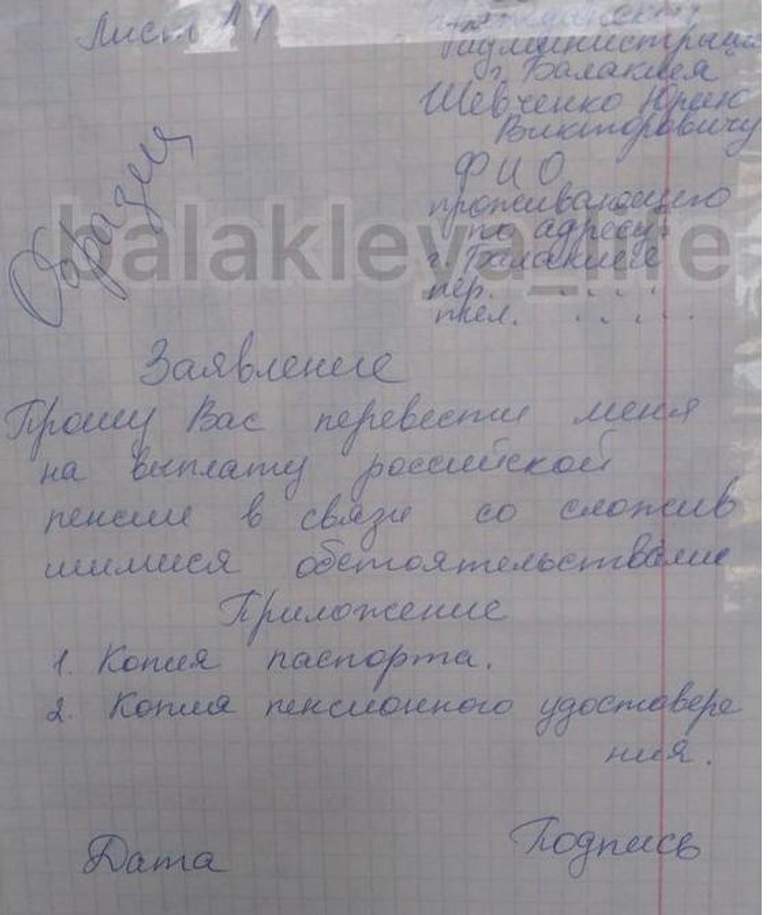 Лист №1
администрации
г. Балаклея
Шевченко Юрию
Викторовичу
ФИО
проживающего
по адресу:
г. Балаклея
пер. . . . .
тел. . . . . .
Образец
balakleya_life
Заявление
Прошу Вас перевести меня
на выплату российской
пенсии в связи со сложив
шимися обстоятельствами
Приложение
1. Копия паспорта.
2. Копия пенсионного удостовере
ния.
Дата Подпись